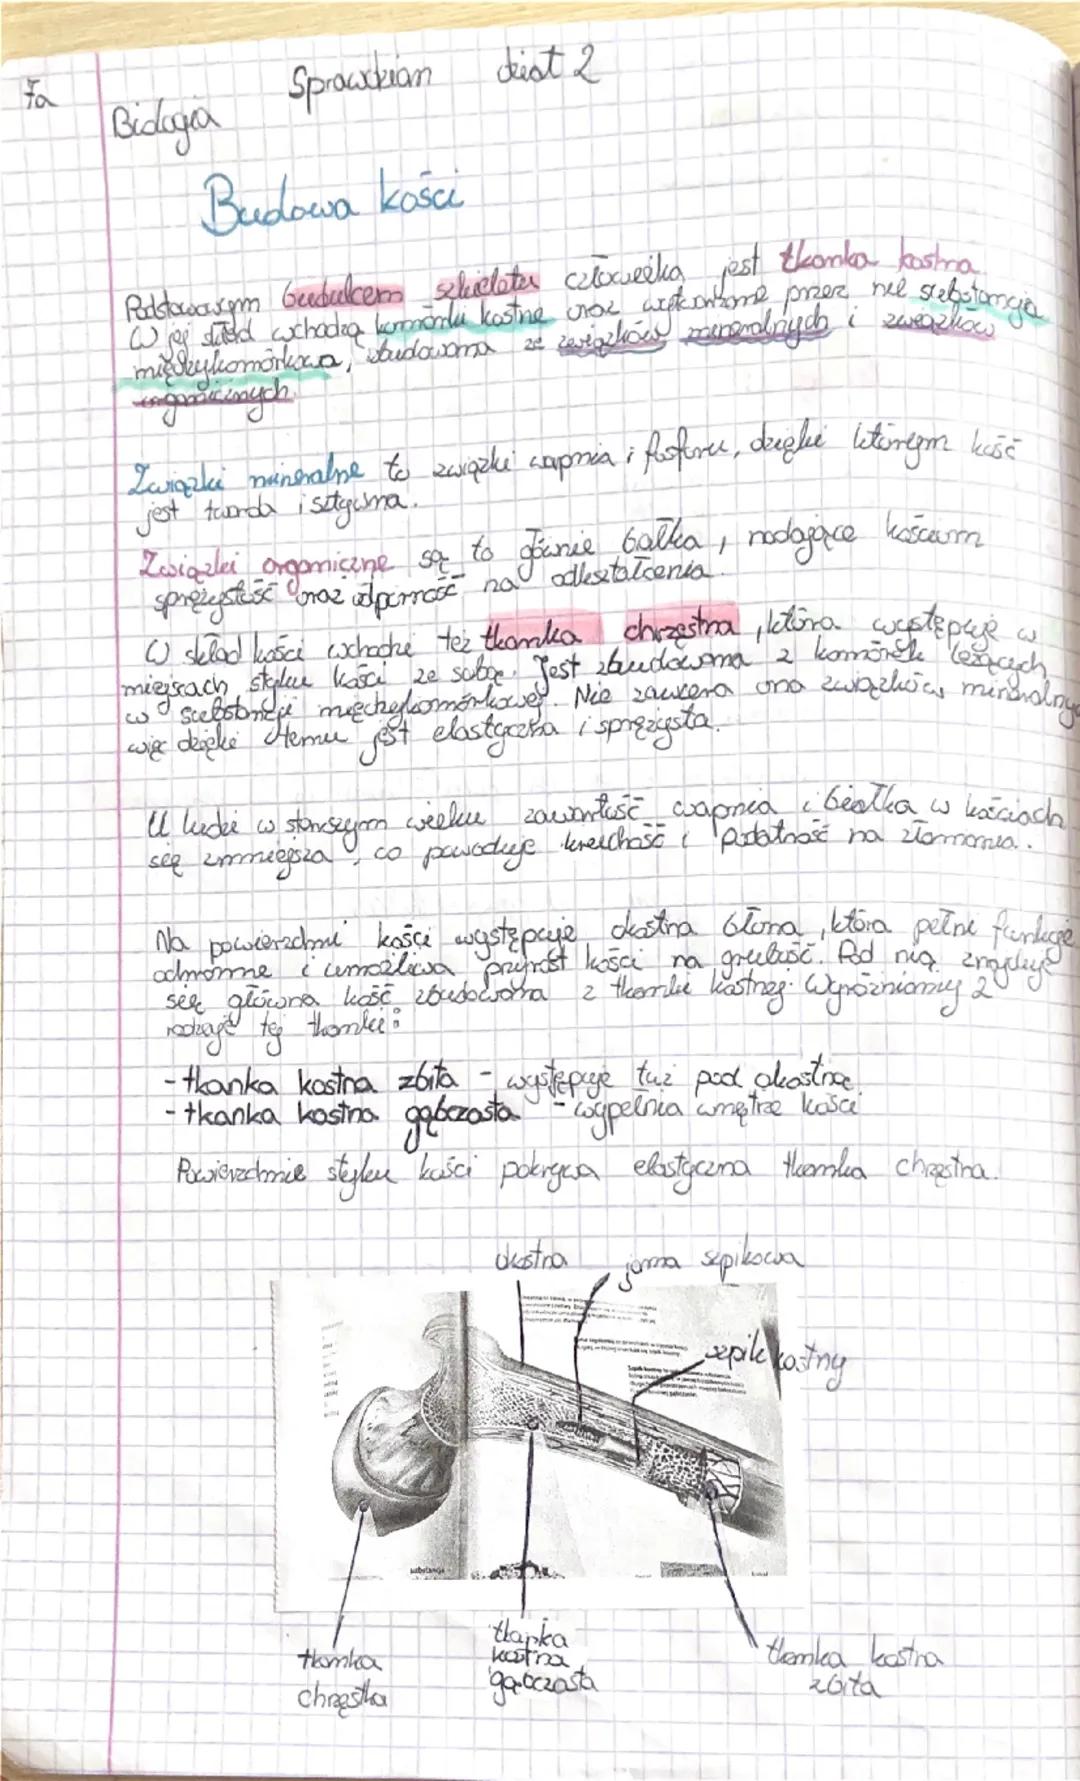 7a
Sprawdzian dział 2
Biologia
Budowa kości
Podstawowym budulcem szkieletu człowieka jest tkanka kostna.
W jej skład wchodzą komórki kostne oraz wytwarzana przez nie substancja
międzykomórkowa, zbudowana ze związków mineralnych i związków
organicznych.
Związki mineralne to związki wapnia i fosforu, dzięki którym kość
jest twarda i sztywna.
Związki organiczne są to głównie białka, nadające kościom
sprężystość oraz odporność na odkształcenia.
W skład kości wchodzi też tkanka chrzęstna, która występuje w
miejscach styku kości ze sobą. Jest zbudowana z komórek leżących
w substancji międzykomórkowej. Nie zawiera ona związków mineralny
więc dzięki temu jest elastyczna i sprężysta.
U ludzi w starszym wieku zawartość wapnia i białka w kościach
się zmniejsza, co powoduje kruchość i podatność na złamania.
Na powierzchni kości występuje okostna błona, która pełni funkcje
ochronne i umożliwia przyrost kości na grubość. Pod nią znajduje
się główna kość zbudowana z tkanki kostnej. Wyróżniamy 2
rodzaje tej tkanki:
- tkanka kostna zbita - występuje tuż pod okostną
- tkanka kostna gąbczasta - wypełnia wnętrze kości
Powierzchnie styku kości pokrywa elastyczna tkanka chrzęstna.
okostna
jama szpikowa
szpik kostny
tkanka
chrzęstka
tkanka
kostna
gąbczasta
tkanka kostna
zbita